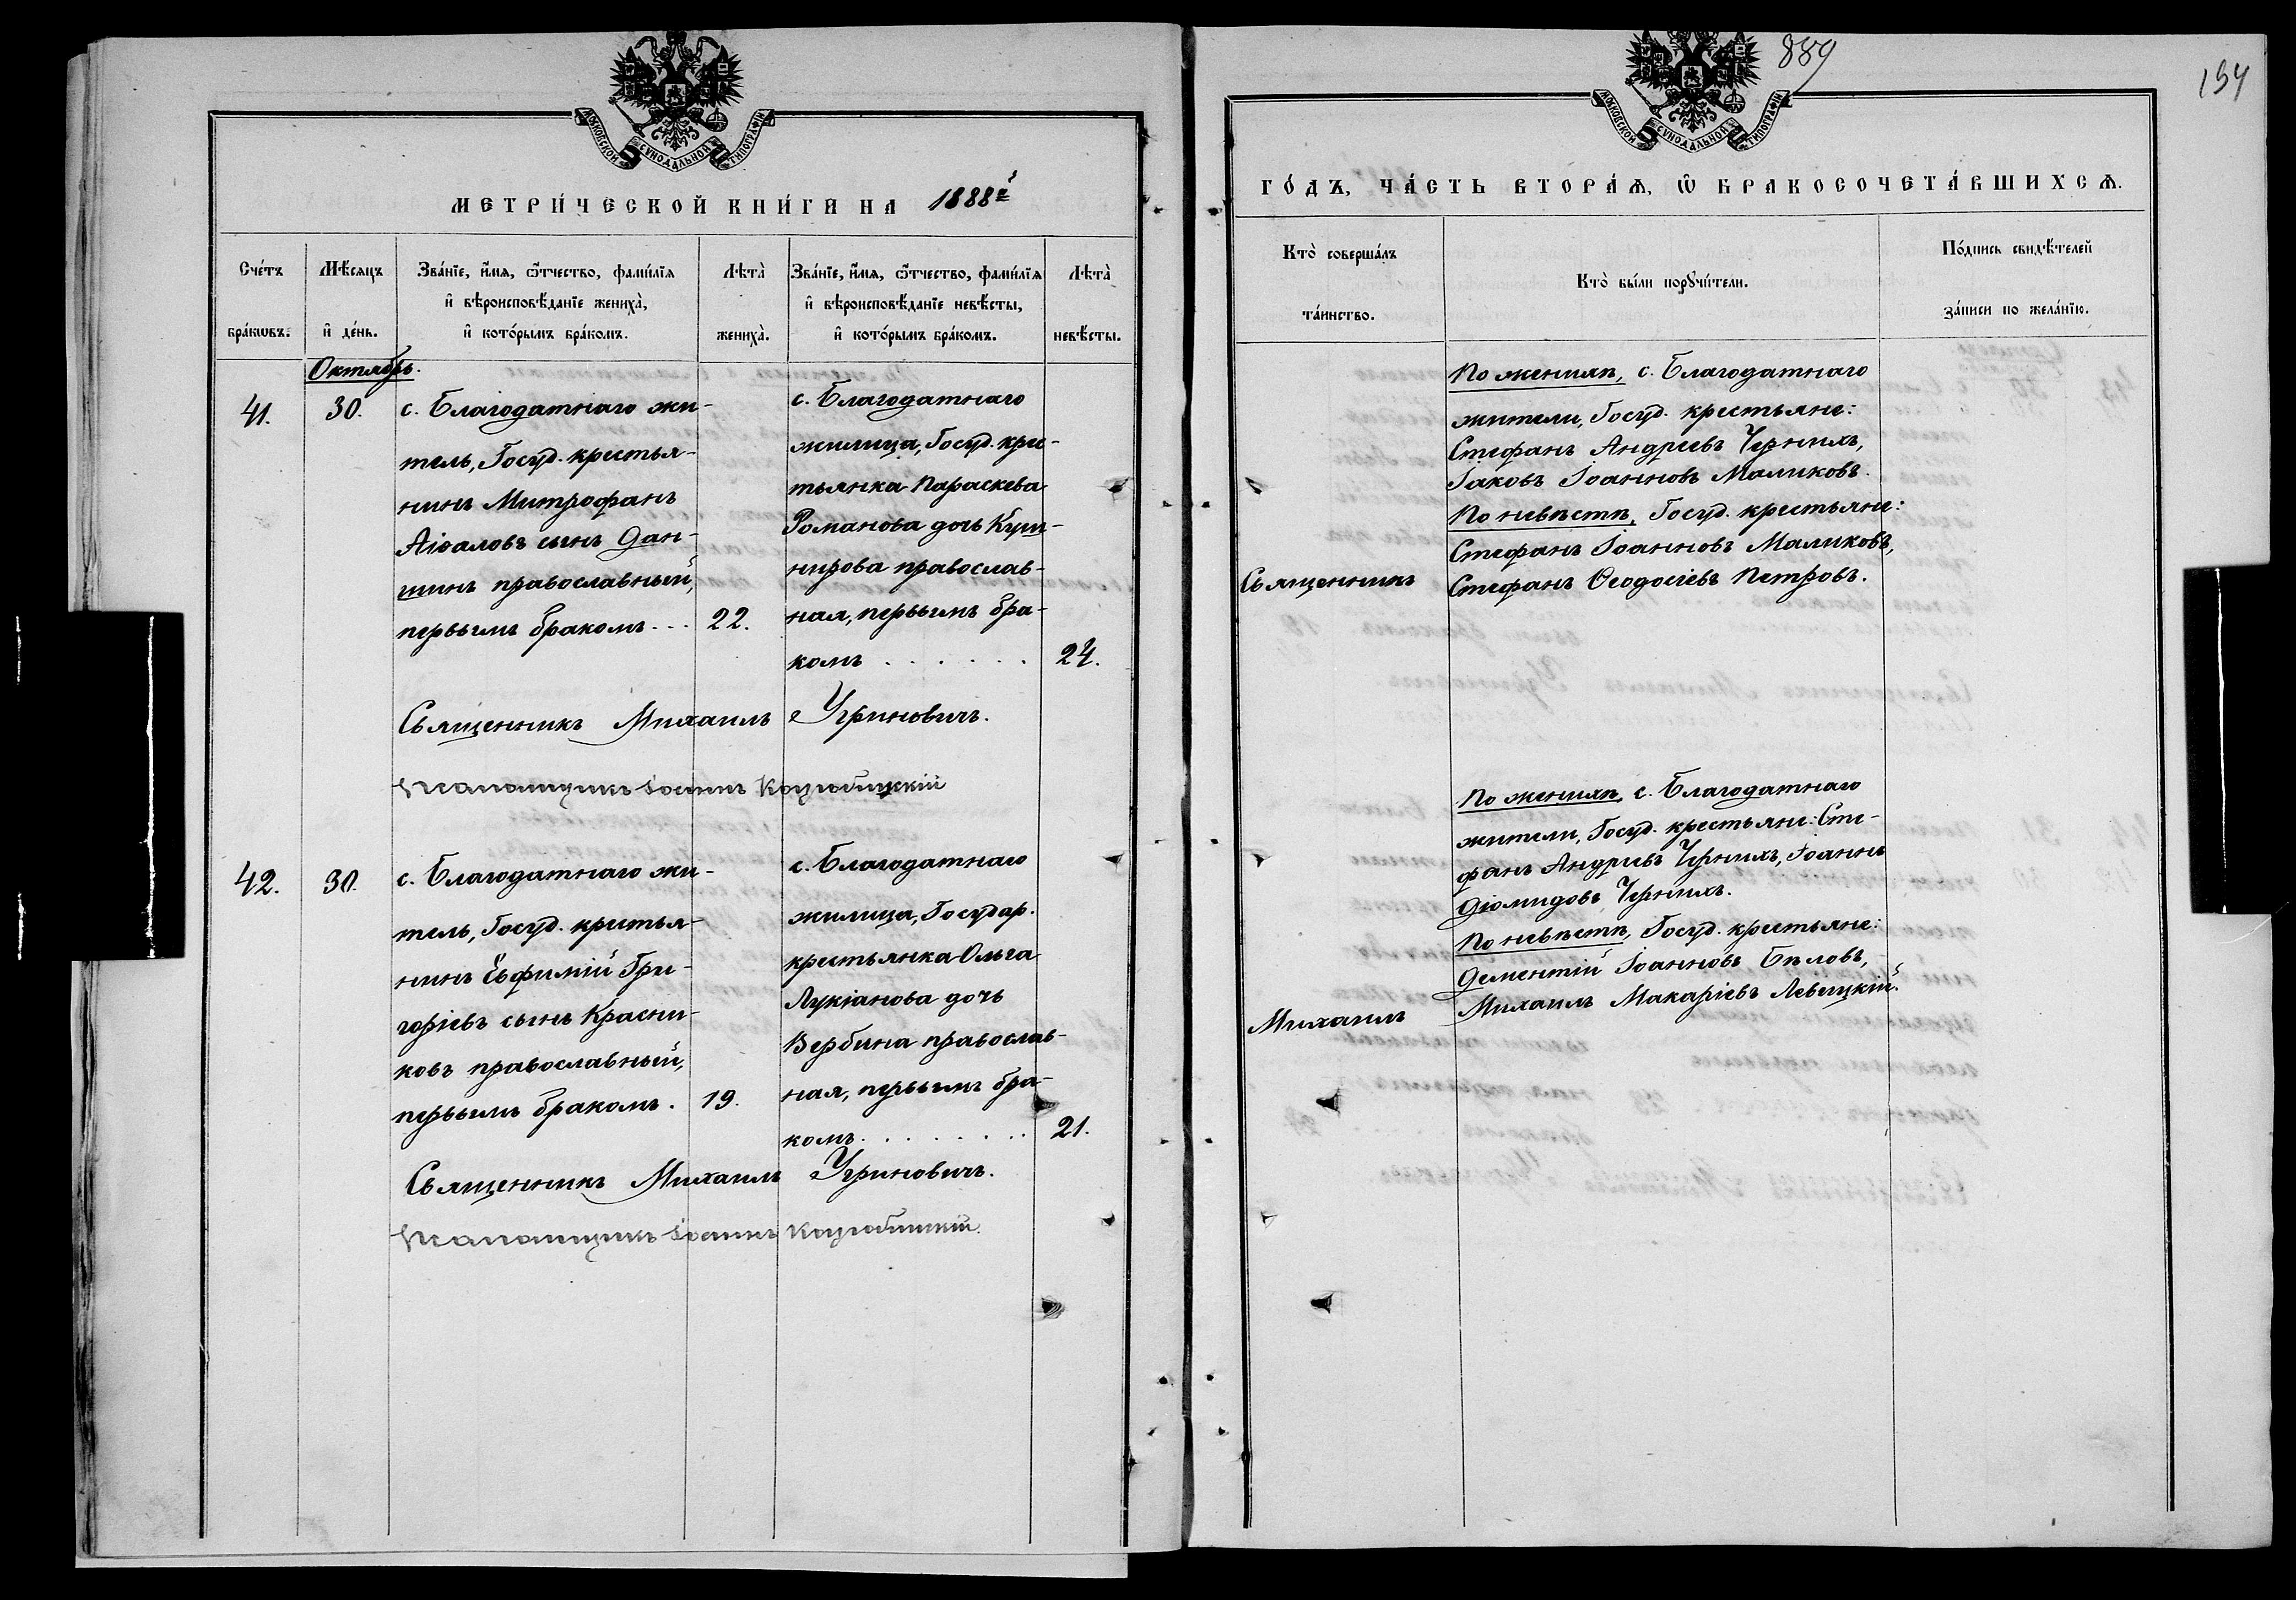 889
194
МОСКОВСКОЙ СѴНОДАЛЬНОЙ ТИПОГРАФІИ
МЕТРИ́ЧЕСКОЙ КНИ́ГИ НА 1888й
Сче́тъ бра́кѡвъ.
Мѣ́сяцъ и҆ де́нь.
Зва́нїе, и҆́мя, ѻ҆́тчество, фами́лїя
и҆ вѣроисповѣ́данїе жениха̀,
и҆ кото́рымъ бра́комъ.
Лѣта̀ жениха̀.
Зва́нїе, и҆́мя, ѻ҆́тчество, фами́лїя
и҆ вѣроисповѣ́данїе невѣ́сты,
и҆ кото́рымъ бра́комъ.
Лѣта̀ невѣ́сты.
Октябрь.
41.
30.
с. Благодатнаго жи-
тель, Госуд. крестья-
нинъ Митрофанъ
Аіѳаловъ сынъ Дан-
шинъ православный,
первымъ бракомъ...
22.
с. Благодатнаго
жилица, Госуд. крес-
тьянка Параскева
Романова дочь Куш-
нирова православ-
ная, первымъ бра-
комъ . . . . . .
24.
Священникъ Михаилъ Угриновичъ.
Псаломщикъ Іоаннъ Коцюбинскій
42.
30.
с. Благодатнаго жи-
тель, Госуд. крестья-
нинъ Евфимій Гри-
горіевъ сынъ Красни-
ковъ православный,
первымъ бракомъ.
19.
с. Благодатнаго
жилица, Государ.
крестьянка Ольга
Лукіанова дочь
Вербина православ-
ная, первымъ бра-
комъ. . . . . . .
21.
Священникъ Михаилъ Угриновичъ.
Псаломщикъ Іоаннъ Коцюбинскій.
МОСКОВСКОЙ СѴНОДАЛЬНОЙ ТИПОГРАФІИ
ГО́ДЪ, ЧА́СТЬ ВТОРА́Ѧ, Ѡ҆ БРАКОСОЧЕТА́ВШИХСѦ.
Кто̀ соверша́лъ
та́инство.
Кто̀ бы́ли порꙋчи́тели.
По́дпись свидѣ́телей
за́писи по жела́нїю.
Священникъ
По женихѣ, с. Благодатнаго
жители, Госуд. крестьяне:
Стефанъ Андреевъ Черныхъ,
Іаковъ Іоанновъ Маликовъ.
По невѣстѣ, Госуд. крестьяне:
Стефанъ Іоанновъ Маликовъ,
Стефанъ Ѳеодосіевъ Петровъ.
Михаилъ
По женихѣ, с. Благодатнаго
жители, Госуд. крестьяне: Сте-
фанъ Андреевъ Черныхъ, Іоаннъ
Діомидовъ Черныхъ.
По невѣстѣ, Госуд. крестьяне:
Дементій Іоанновъ Бѣловъ,
Михаилъ Макаріевъ Левицкій.